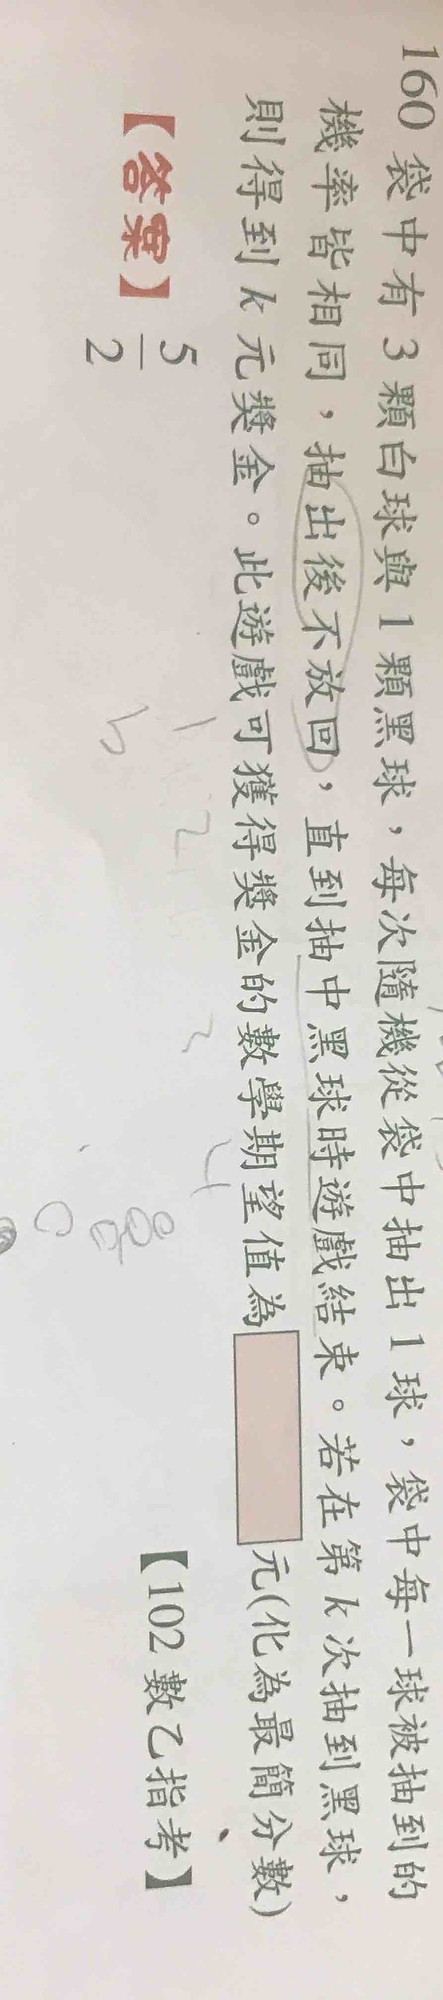 160 袋中有 3 顆白球與 1 顆黑球，每次隨機從袋中抽出 1 球，袋中每一球被抽到的
機率皆相同，抽出後不放回，直到抽中黑球時遊戲結束。若在第 k 次抽到黑球，
則得到 k 元獎金。此遊戲可獲得獎金的數學期望值為 元(化為最簡分數)
【102 數乙指考】
【答案】5/2
1 2 3 4